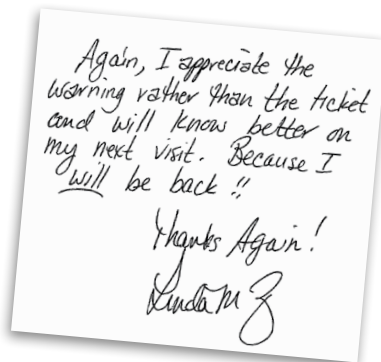 Again, I appreciate the
warning rather than the ticket
and will know better on
my next visit. Because I
will be back !!
Thanks Again!
Linda M